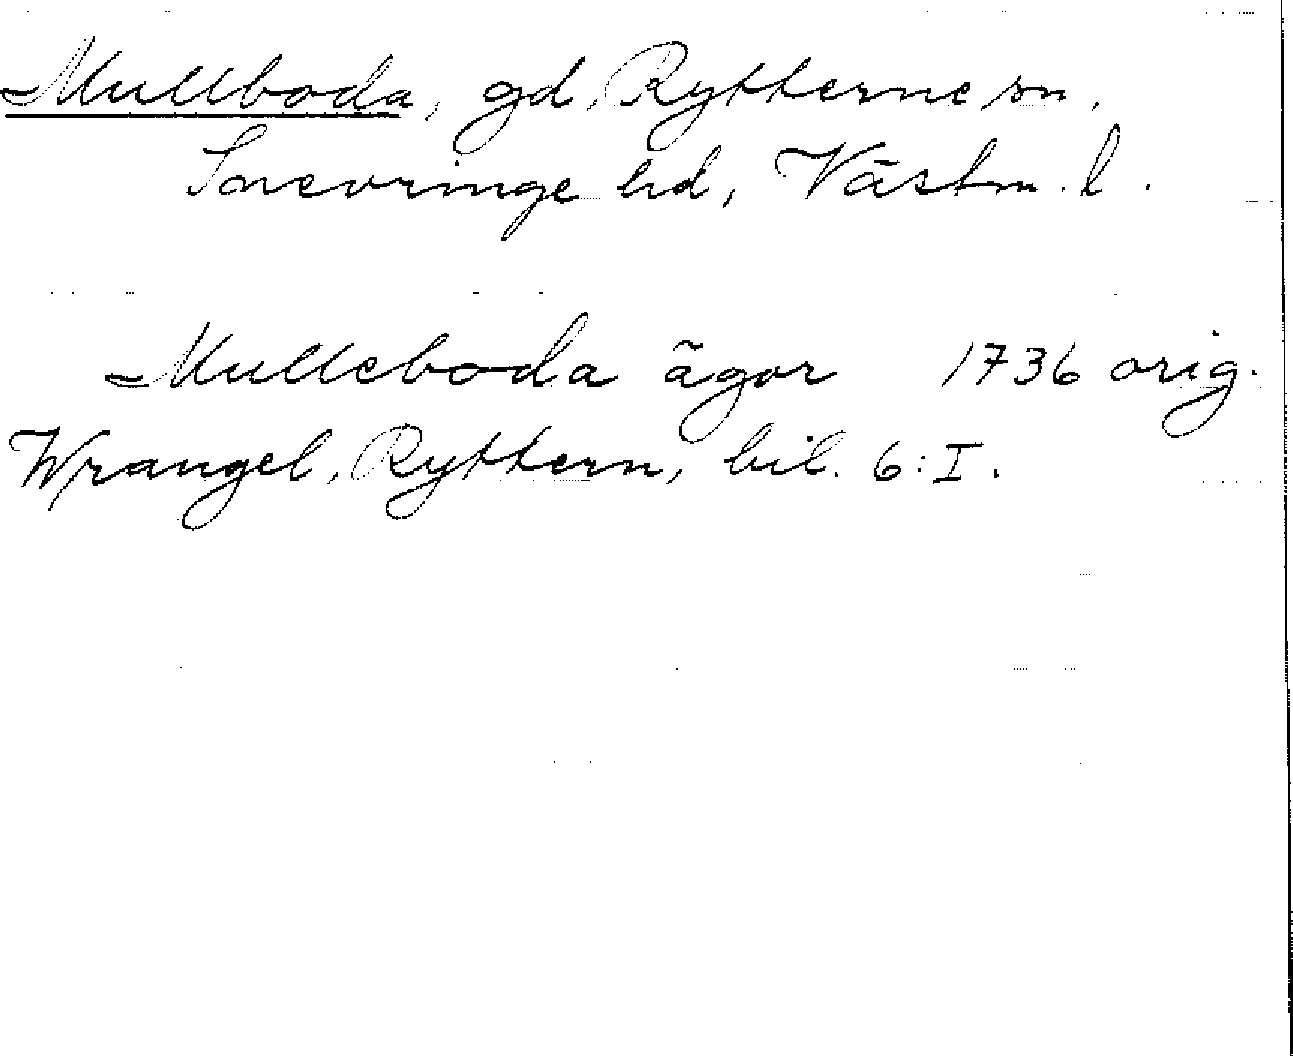 Mullboda, gd, Rytterne sn,
Snevringe hd, Västm. l.
Mulleboda ägor 1736 orig.
Wrangel, Ryttern, bil. 6:I.